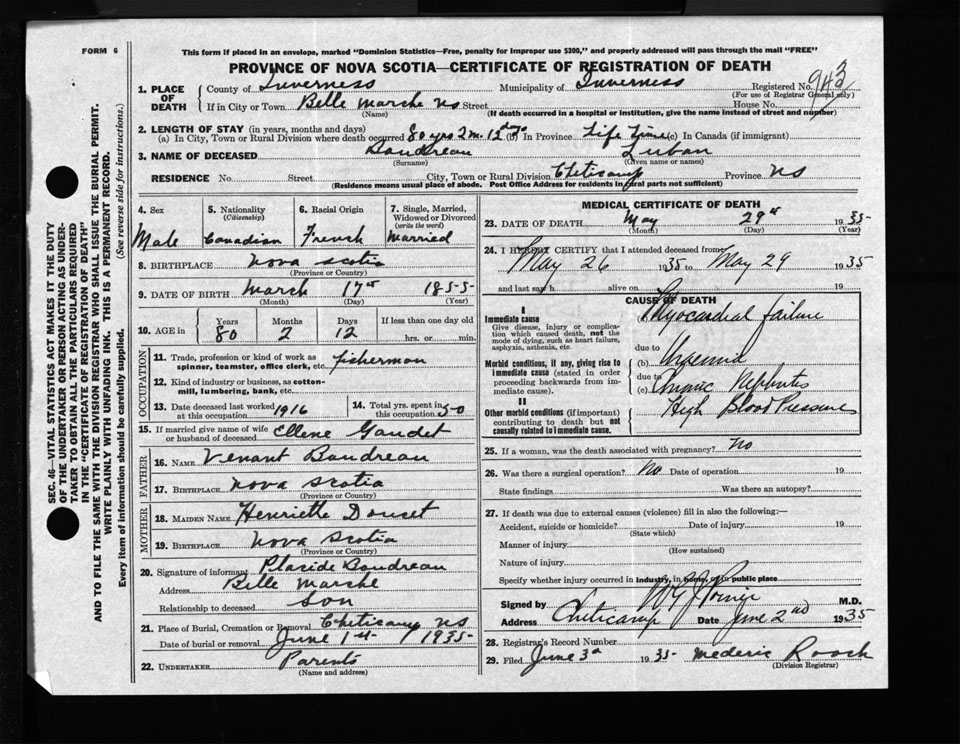 FORM 6
This form if placed in an envelope, marked "Dominion Statistics—Free, penalty for improper use $300," and properly addressed will pass through the mail "FREE"
PROVINCE OF NOVA SCOTIA—CERTIFICATE OF REGISTRATION OF DEATH
1. PLACE OF DEATH
County of Inverness Municipality of Inverness Registered No. 943
(For use of Registrar General only)
If in City or Town Belle Marche NS Street House No.
(Name) (If death occurred in a hospital or institution, give the name instead of street and number)
2. LENGTH OF STAY (in years, months and days)
(a) In City, Town or Rural Division where death occurred 80 yrs 2 m. 12 dys (b) In Province Life Time (c) In Canada (if immigrant)
3. NAME OF DECEASED Boudreau Luban
(Surname) (Given name or names)
RESIDENCE No. Street City, Town or Rural Division Cheticamp Province NS
(Residence means usual place of abode. Post Office Address for residents in rural parts not sufficient)
4. Sex Male
5. Nationality (Citizenship) Canadian
6. Racial Origin French
7. Single, Married, Widowed or Divorced (write the word) Married
8. BIRTHPLACE Nova Scotia
(Province or Country)
9. DATE OF BIRTH March 17th 1855
(Month) (Day) (Year)
10. AGE in Years 80 Months 2 Days 12 If less than one day old hrs. or min.
OCCUPATION
11. Trade, profession or kind of work as spinner, teamster, office clerk, etc. fisherman
12. Kind of industry or business, as cotton-mill, lumbering, bank, etc.
13. Date deceased last worked at this occupation 1916
14. Total yrs. spent in this occupation 50
15. If married give name of wife or husband of deceased Ellene Gaudet
FATHER
16. NAME Venant Boudreau
17. BIRTHPLACE Nova Scotia
(Province or Country)
MOTHER
18. MAIDEN NAME Henriette Doucet
19. BIRTHPLACE Nova Scotia
(Province or Country)
20. Signature of informant Placide Boudreau
Address Belle Marche
Relationship to deceased Son
21. Place of Burial, Cremation or Removal Cheticamp NS
Date of burial or removal June 1st 1935
22. UNDERTAKER Parents
(Name and address)
MEDICAL CERTIFICATE OF DEATH
23. DATE OF DEATH May 29th 1935
(Month) (Day) (Year)
24. I HEREBY CERTIFY that I attended deceased from
May 26 1935 to May 29 1935
and last saw h alive on 19
CAUSE OF DEATH
I
Immediate cause
Give disease, injury or complication which caused death, not the mode of dying, such as heart failure, asphyxia, asthenia, etc.
(a) Myocardial failure
due to
Morbid conditions, if any, giving rise to immediate cause (stated in order proceeding backwards from immediate cause).
(b) Uraemia
due to
(c) Chronic Nephrites
II
Other morbid conditions (if important) contributing to death but not causally related to immediate cause.
High Blood Pressure
25. If a woman, was the death associated with pregnancy? No
26. Was there a surgical operation? No Date of operation 19
State findings Was there an autopsy?
27. If death was due to external causes (violence) fill in also the following:—
Accident, suicide or homicide? Date of injury 19
(State which)
Manner of injury
(How sustained)
Nature of injury
Specify whether injury occurred in industry, in home, or in public place
Signed by M.D.
Address Cheticamp Date June 2nd 1935
28. Registrar's Record Number
29. Filed June 3rd 1935 Mederic Roach
(Division Registrar)
SEC. 46—VITAL STATISTICS ACT MAKES IT THE DUTY
OF THE UNDERTAKER OR PERSON ACTING AS UNDER-
TAKER TO OBTAIN ALL THE PARTICULARS REQUIRED
IN THE "CERTIFICATE OF REGISTRATION OF DEATH"
AND TO FILE THE SAME WITH THE DIVISION REGISTRAR WHO SHALL ISSUE THE BURIAL PERMIT.
WRITE PLAINLY WITH UNFADING INK. THIS IS A PERMANENT RECORD.
Every item of information should be carefully supplied. (See reverse side for instructions.)